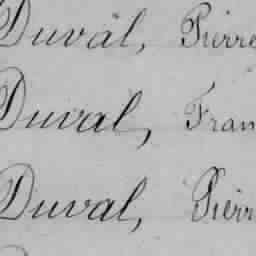 Duval, Pierre
Duval, Fran
Duval, Pierr